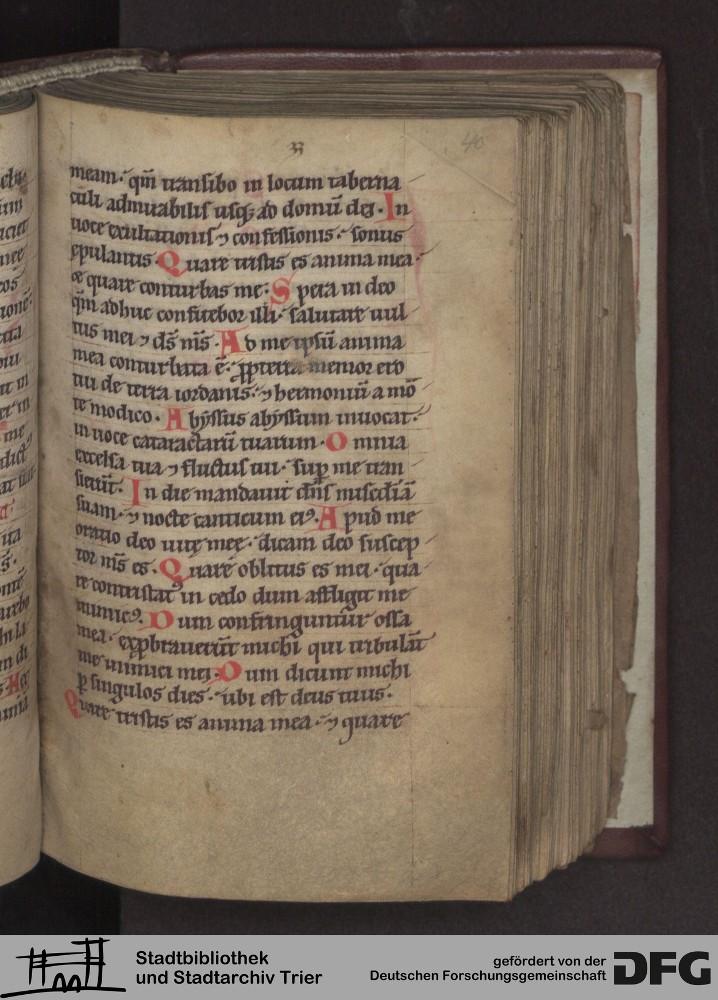 33
40
meam· qm̄ transibo in locum taberna
culi admirabilis usq; ad domū dei· In
uoce exultationis ⁊ confessionis· sonus
epulantis· Quare tristis es anima mea·
et quare conturbas me· Spera in deo
qm̄ adhuc confitebor illi· salutare uul
tus mei ⁊ ds̄ ms̄· Ad me ipsū anima
mea conturbata ē· ꝓpterea memor ero
tui de terra iordanis· ⁊ hermoniū a mō
te modico· Abyssus abyssum inuocat·
in uoce cataractarū tuarum· Omnia
excelsa tua ⁊ fluctus tui· sup me tran
sierūt· In die mandauit dn̄s miscd̄iā
suam· ⁊ nocte canticum ei⁹· Apud me
oratio deo uite mee· dicam deo suscep
tor ms̄ es· Quare oblitus es mei· qua
re contristat᷒ in cedo dum affligit me
inimic⁹· Dum confringuntur ossa
mea· exꝓbrauerūt michi qui tribulāt
me inimici mei· Dum dicunt michi
ꝑ singulos dies· ubi est deus tuus·
Quare tristis es anima mea· ⁊ quare
Stadtbibliothek
und Stadtarchiv Trier
gefördert von der
Deutschen Forschungsgemeinschaft
DFG